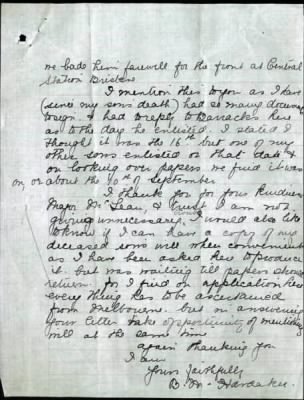 we bade him farewell for the front at Central
Station Brisbane
I mention this to you as I have
(since my son's death) had so many
to sign. & had to reply to Barracks here
as to the day he enlisted. I stated I
thought it was the 16th but one of my
other sons enlisted on that date &
on looking over papers we find it was
on, or about the 10th of September
I thank you for your kindness
Major McLean, & trust I am not
giving unnecessary, I would also like
to know if I can have a copy of my
deceased son's will when convenient
as I have been asked here to produce
it. but was waiting till papers should
return. for I find on application here
every thing has to be ascertained
from Melbourne. but in answering
your letter take opportunity of mentioning
will at the same time
again thanking you
I am
Yours faithfully
B. M. Hardaker